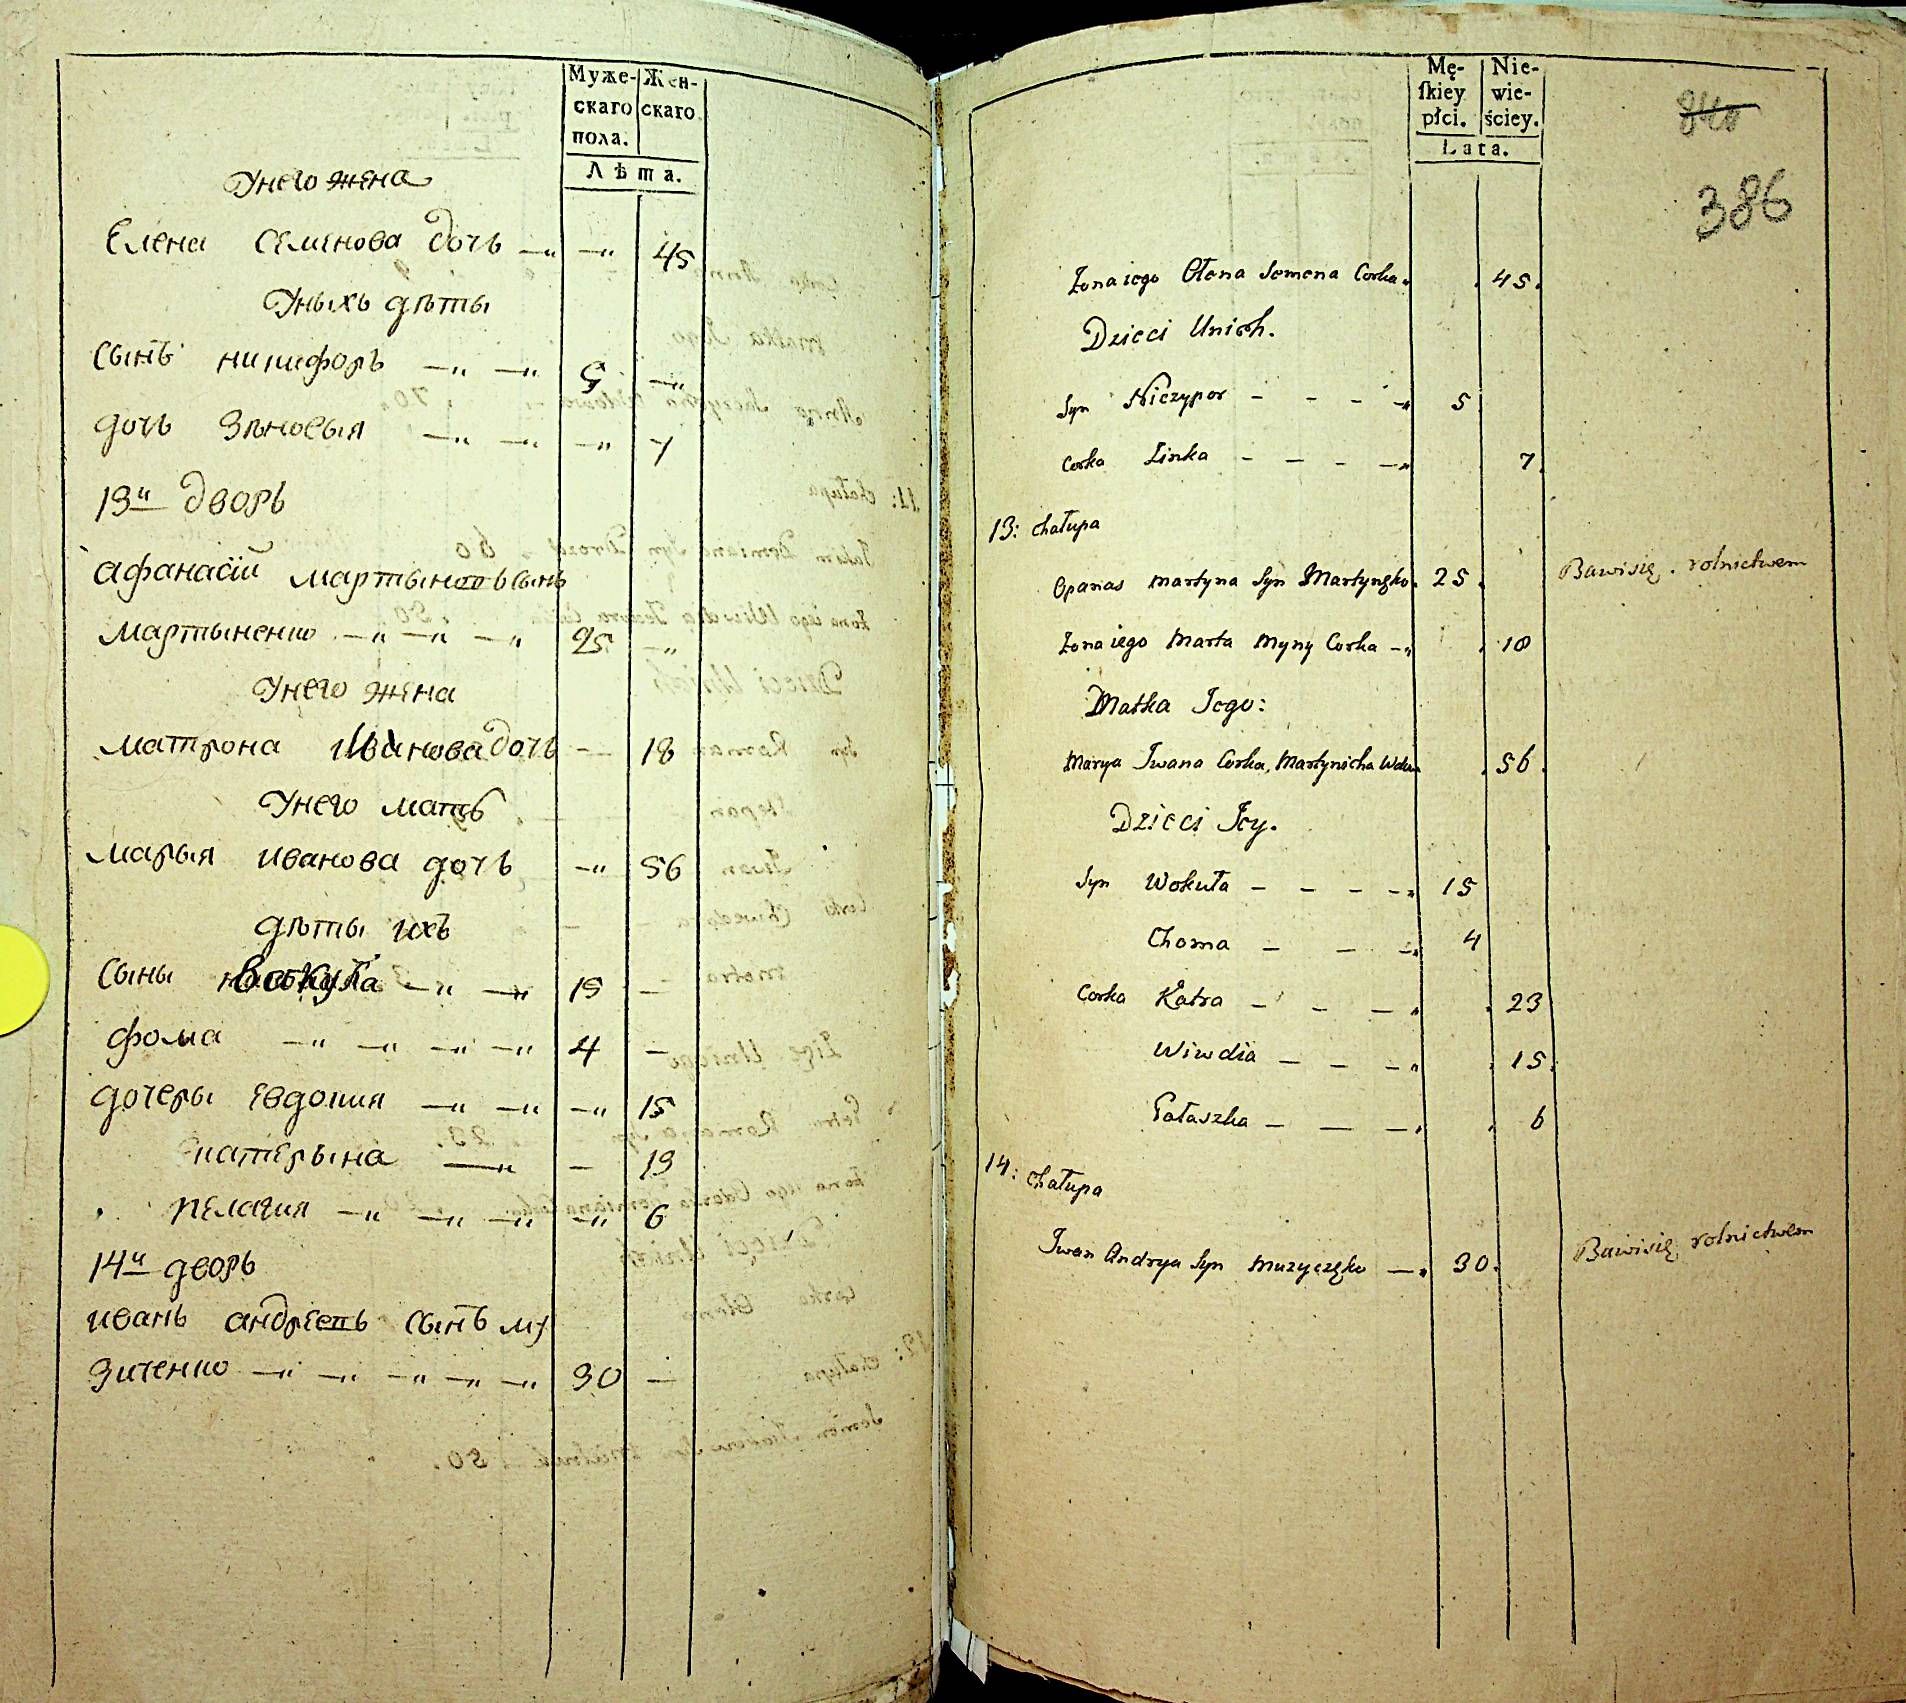 Муже-
скаго
пола.
Жен-
скаго
Лѣта.
Унего жена
Елена Семенова дочь 45
Уныхъ дѣты
Сынъ никифоръ 5
дочь Зѣновыя 7
13й дворъ
афанасїй мартыновъ сынъ
мартыненко 25
Унего жена
матрона Иванова дочь 18
Унего мать
марыя иванова дочь 56
дѣты ихъ
Сыны вакула 15
фома 4
дочеры евдокия 15
катерына 13
пелагия 6
14й дворъ
иванъ андреевъ сынъ му
зиченко 30
Mę-
ſkiey
płci.
Nie-
wie-
ściey.
Lata.
840
386
Żona iego Ołena Semena Corka 45
Dzieci Unich.
Syn Niczypor 5
Corka Zinka 7
13: Chałupa
Opanas Martyna Syn Martynęko 25 Bawisię rolnictwem
Żona iego Marta Myny Corka 18
Matka Jego:
Marya Jwana Corka, Martynicha Wdowa 56
Dzieci Jey.
Syn Wokuła 15
Choma 4
Corka Katra 23
Wiwdia 15
Pałaszka 6
14: Chałupa
Jwan Andrya Syn Muzyczęko 30 Bawisię rolnictwem